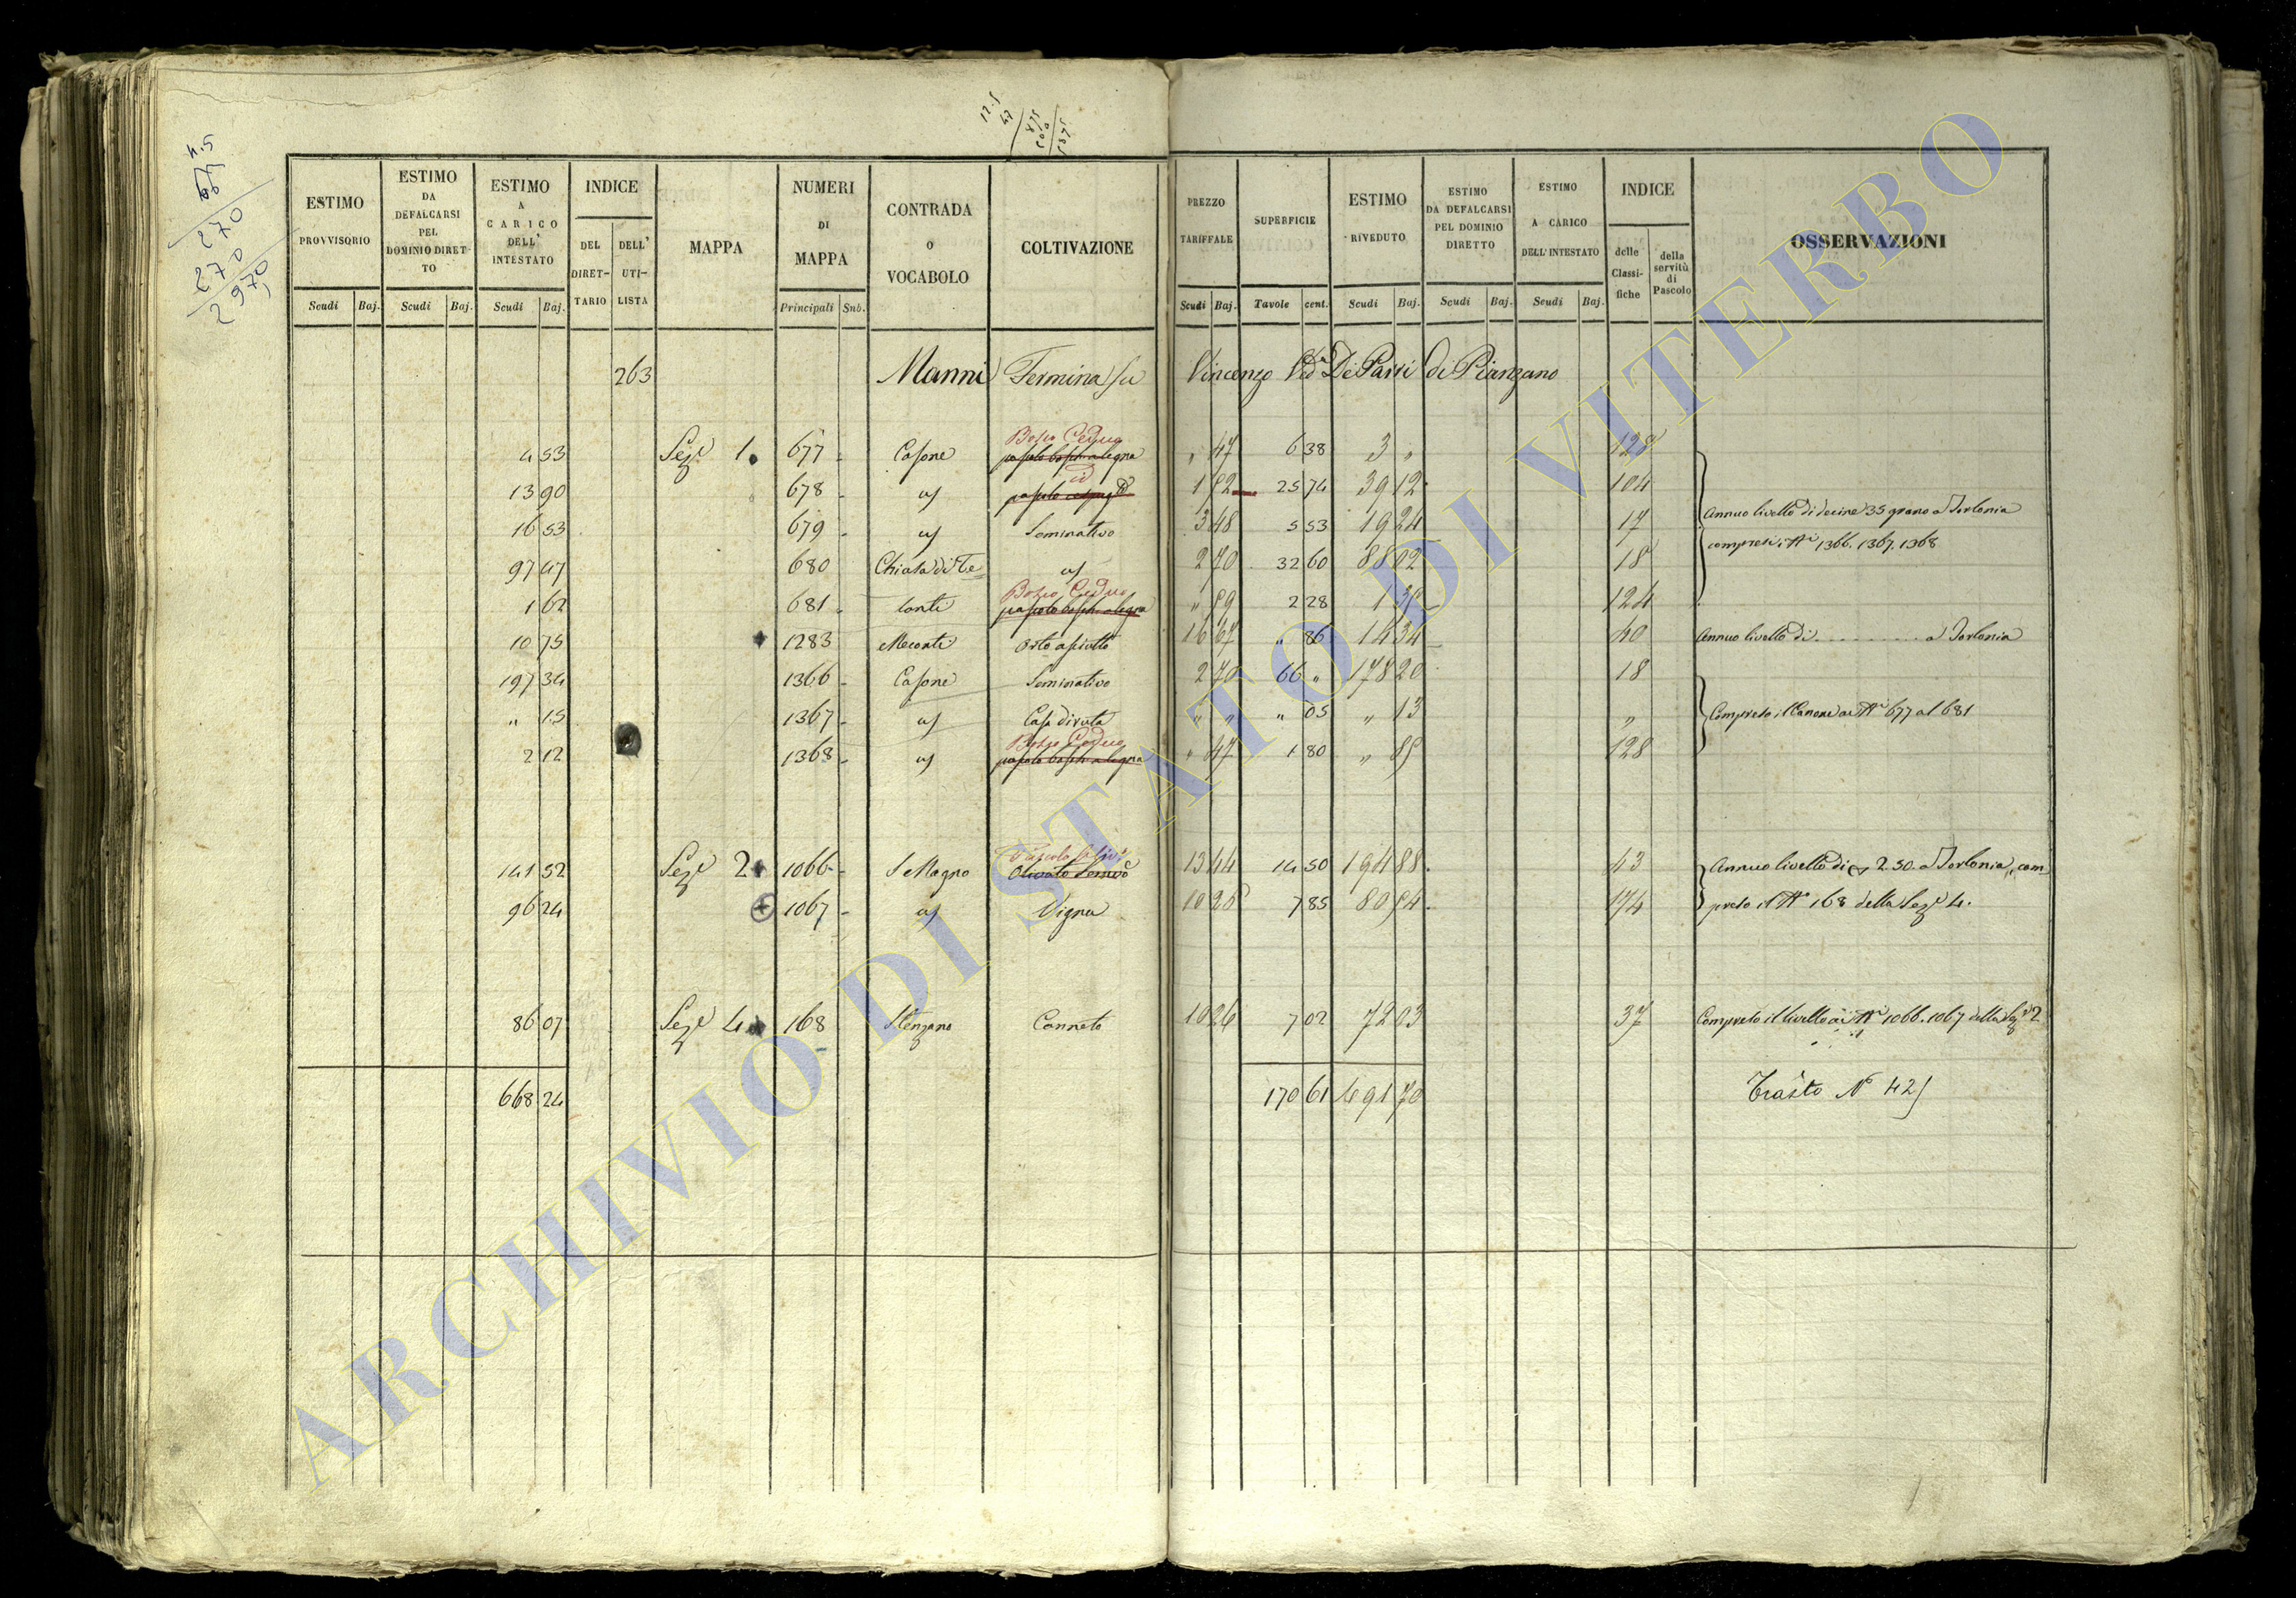 12.5
47
875
500
5875
4.5
66
270
270
2970
ESTIMO PROVVISORIO
Scudi Baj.
ESTIMO DA DEFALCARSI PEL DOMINIO DIRET- TO
Scudi Baj.
ESTIMO A CARICO DELL' INTESTATO
Scudi Baj.
INDICE
DEL DIRET- TARIO
DELL' UTI- LISTA
MAPPA
NUMERI DI MAPPA
Principali Sub.
CONTRADA O VOCABOLO
COLTIVAZIONE
PREZZO TARIFFALE
Scudi Baj.
SUPERFICIE
Tavole cent.
ESTIMO RIVEDUTO
Scudi Baj.
ESTIMO DA DEFALCARSI PEL DOMINIO DIRETTO
Scudi Baj.
ESTIMO A CARICO DELL' INTESTATO
Scudi Baj.
INDICE
delle Classi- fiche
della servitù di Pascolo
OSSERVAZIONI
263 Manni Fermina fu Vincenzo Vedª De Parri di Pianzano
Bosco Ceduo
4 53 Seze 1. 677 Casone pascolo bosch. a legna " 47 6 38 3 " 128
id
13 90 678 id pascolo cespugto 1 52 25 74 39 12 104
16 53 679 id Seminativo 3 48 5 53 19 24 17 Annuo livello di decine 35 grano a Torlonia
97 47 680 Chiata di Te= id 2 70 32 60 88 02 18 compresi i Ni 1366. 1367. 1368
Bosco Ceduo
1 62 681 conti pascolo bosch. a legna " 59 2 28 1 35 124
10 75 1283 Meconti Orto asciutto 16 67 " 86 14 34 40 Annuo livello di . . . . . . . . . a Torlonia
197 34 1366 Casone Seminativo 2 70 66 " 178 20 18
" 15 1367 id Casa diruta " " " 05 " 13 " Compreso il Canone ai Ni 677 al 681
Bosco Ceduo
2 12 1368 id pascolo bosch. a legna " 47 1 80 " 85 128
Pascolo
141 52 Seze 2 1066 S Magno Olivato Semvo 13 44 14 50 194 88 43 Annuo livello di 2. 50. a Torlonia, com-
96 24 1067 id Vigna 10 28 7 85 80 54 174 preso il No 168 della Seze 4.
86 07 Seze 4 168 Stenzano Canneto 10 26 7 02 72 03 37 Compreso il livello ai Ni 1066. 1067 della Seze 2
668 24 170 61 691 70 Trasto No 42
ARCHIVIO DI STATO DI VITERBO